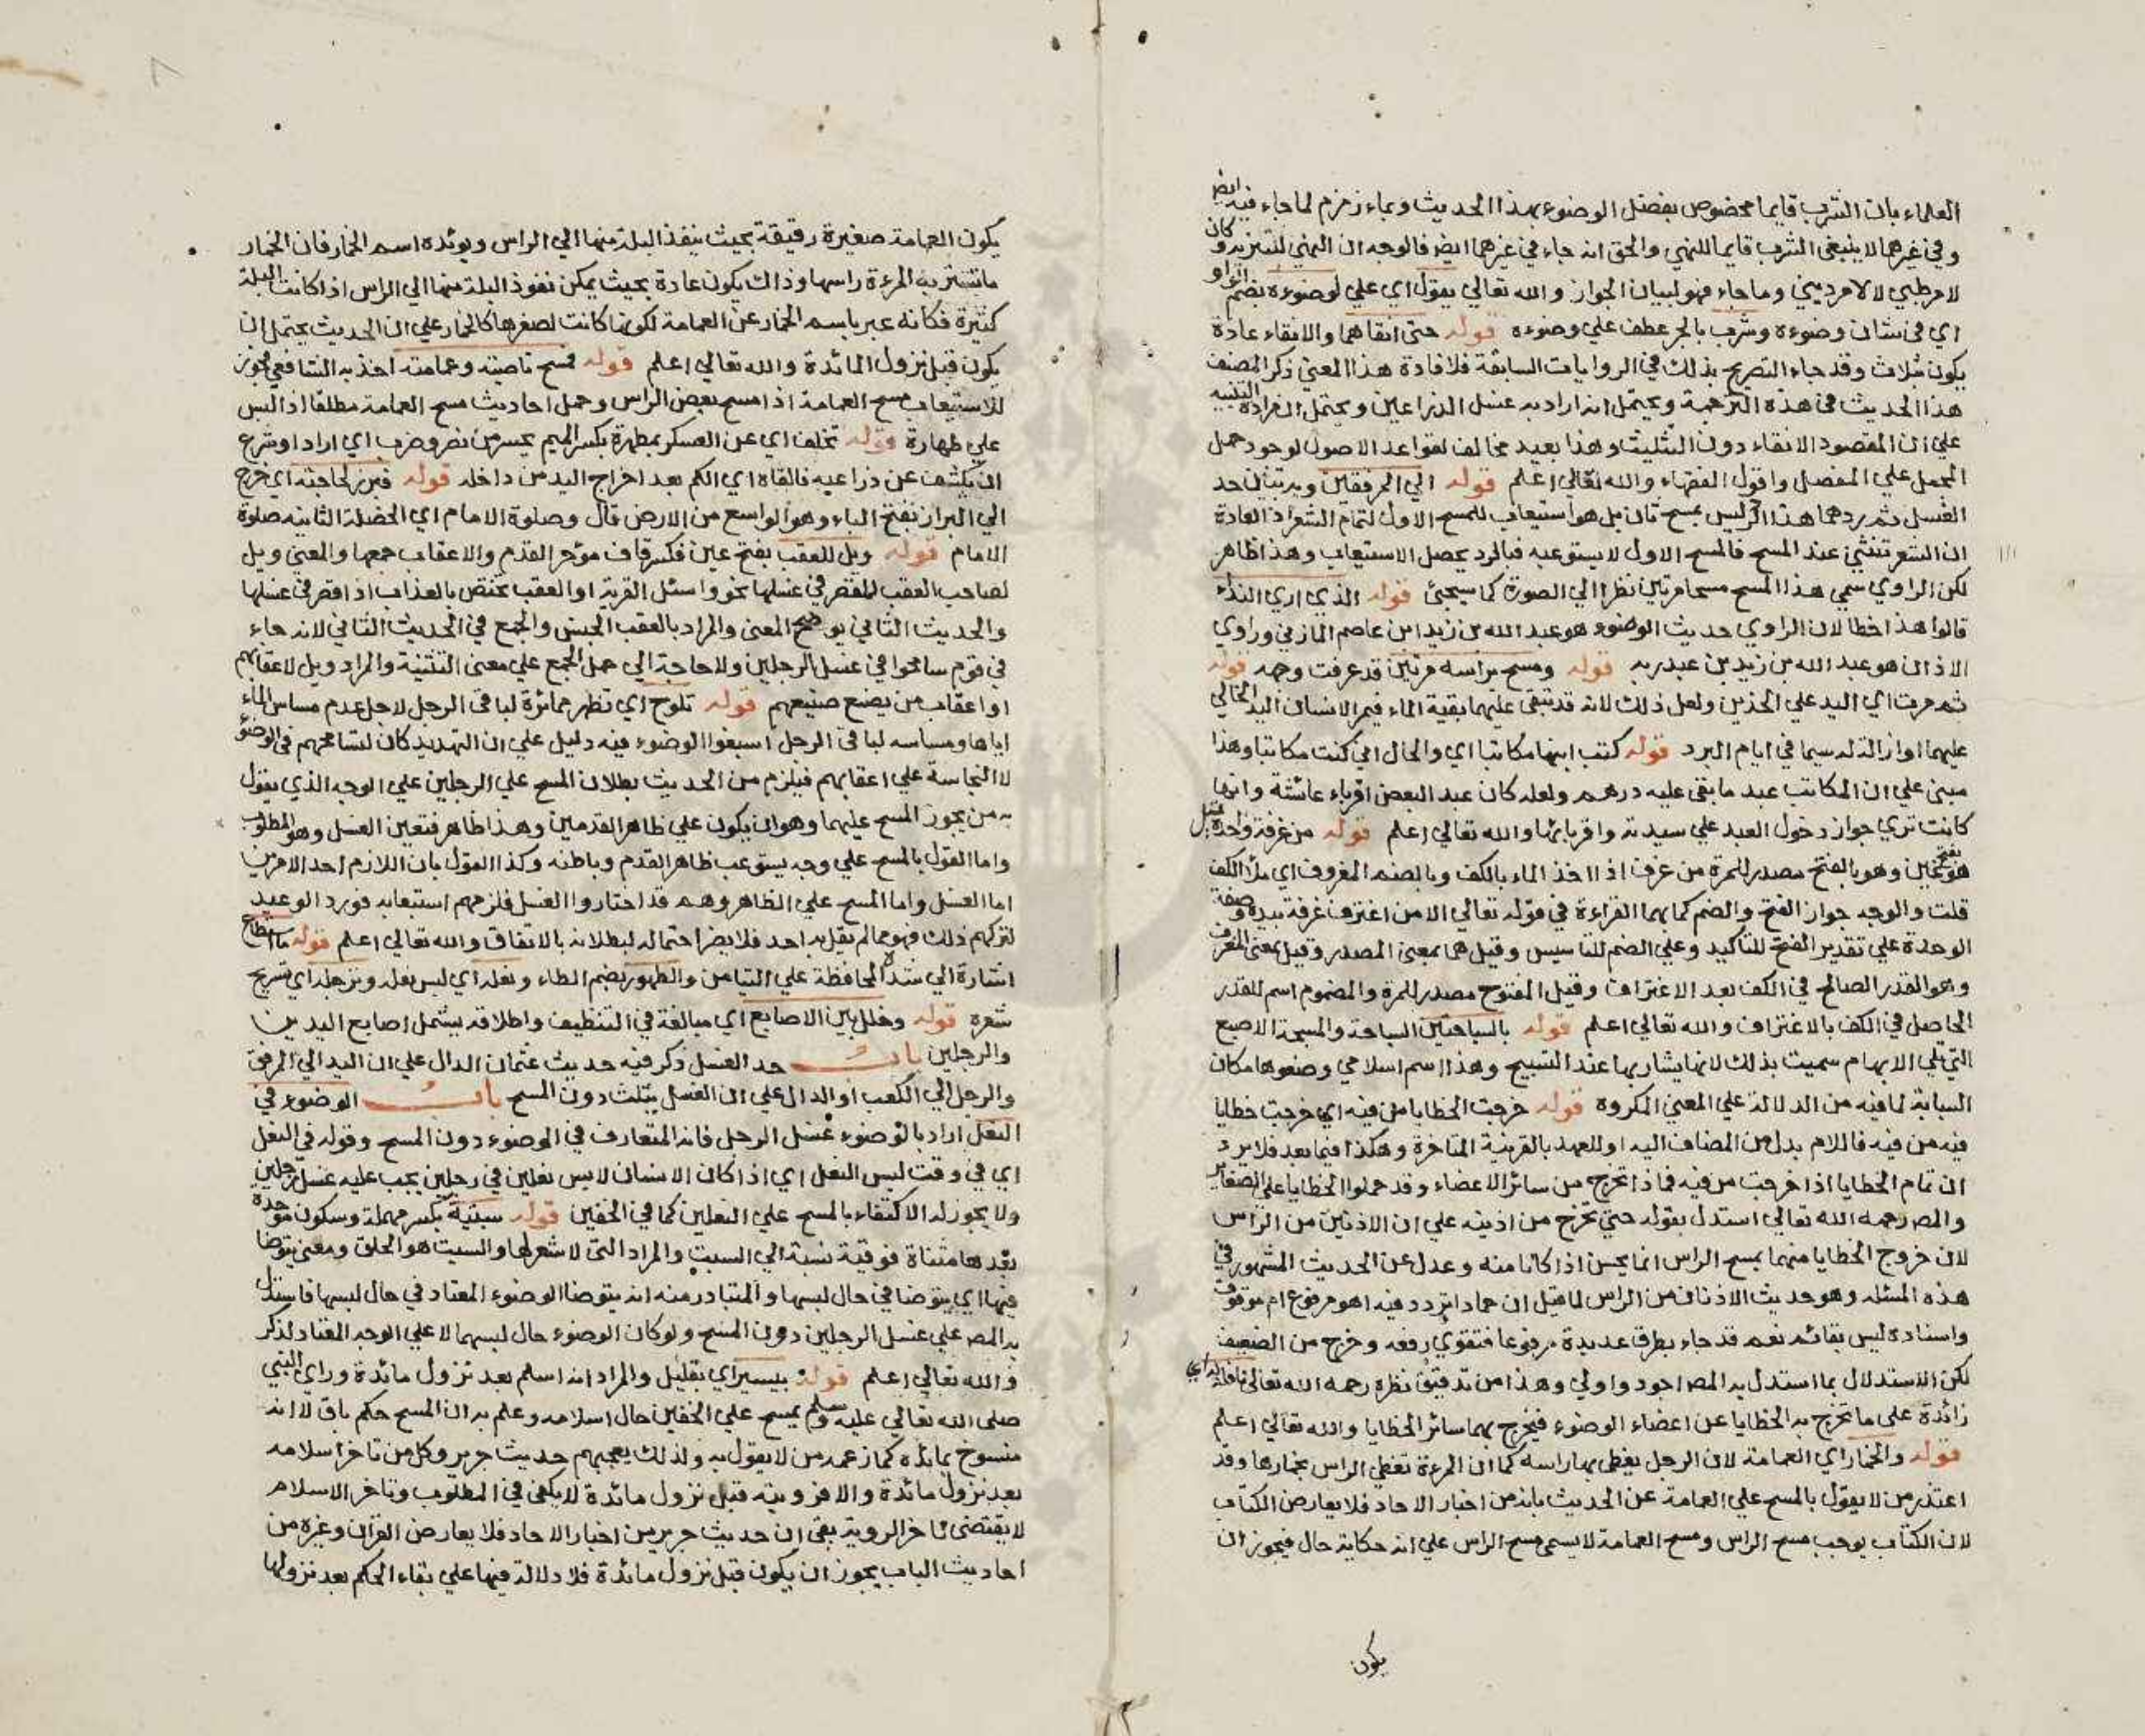 العلماء بان الشرب قايما مخصوص بفضل الوضوء بهذا الحديث وبماء زمزم لما جاء فيه ايضا
وفي غيرهما لا ينبغي الشرب قايما للنهي والحق انه جاء في غيرهما ايضا فالوجه ان النهي للتنزيه وكان
لامر طبي لا لامر ديني وما جاء فهو لبيان الجواز والله تعالي يقول اي علي لوضوءه بضم الواو
اي في شان وضوءه وشرب بالجر عطف علي وضوءه قوله حتى انقاهما والانقاء عادة
يكون بثلاث وقد جاء التصريح بذلك في الروايات السابقة فلافادة هذا المعني ذكر المصنف
هذا الحديث في هذه الترجمة ويحتمل انه اراد به غسل الذراعين ويحتمل انه اراد التنبيه
علي ان المقصود الانقاء دون التثليث وهذا بعيد مخالف لقواعد الاصول لوجود حمل
المجمل علي المفصل واقول الفقهاء والله تعالي اعلم قوله الي المرفقين وبه تبين حد
الغسل ثم ردهما هذا الرد ليس بمسح ثان بل هو استيعاب للمسح الاول لتمام الشعر اذ العادة
ان الشعر تنثني عند المسح فالمسح الاول لا يستوعبه فبالرد يحصل الاستيعاب وهذا ظاهر
لكن الراوي سمي هذا المسح مسحا مرتين نظرا الي الصورة كما سيجئ قوله الذي اري النداء
قالوا هذا خطا لان الراوي حديث الوضوء هو عبد الله بن زيد بن عاصم المازني وراوي
الاذان هو عبد الله بن زيد بن عبد ربه قوله ومسح براسه مرتين قد عرفت وجهه قوله
ثم مرت اي اليد علي الخدين ولعل ذلك لانه قد تبقى عليهما بقية الماء فيمر الانسان اليد الخالي
عليهما او ازالته له سيما في ايام البرد قوله كتب ابنها مكاتبا اي والحال اني كنت مكاتبا وهذا
مبني علي ان المكاتب عبد ما بقي عليه درهم ولعله كان عبد البعض اقرباء عائشة وانها
كانت تري جواز دخول العبد علي سيدته واقربائها والله تعالي اعلم قوله من غرفة واحدة قيل
هو بفتحتين وهو بالفتح مصدر للمرة من غرف اذا اخذ الماء بالكف وبالضم المغروف اي ملأ الكف
قلت والوجه جواز الفتح والضم كما بهما القراءة في قوله تعالي الا من اغترف غرفة بيده وصفة
الوحدة علي تقدير الفتح للتاكيد وعلي الضم للتاسيس وقيل هما بمعنى المصدر وقيل بمعنى المغروف
وهو القدر الصالح في الكف بعد الاغتراف وقيل المفتوح مصدر للمرة والمضموم اسم للقدر
الحاصل في الكف بالاغتراف والله تعالي اعلم قوله بالسباحتين السباحة والمسبحة الاصبع
التي تلي الابهام سميت بذلك لانها يشار بها عند التسبيح وهذا اسم اسلامي وضعوها مكان
السبابة لما فيه من الدلالة علي المعني المكروه قوله خرجت الخطايا من فيه اي خرجت خطايا
فيه من فيه فاللام بدل من المضاف اليه او للعهد بالقرينة المتاخرة وهكذا فيما بعد فلا يرد
ان تمام الخطايا اذا خرجت من فيه فماذا تخرج من سائر الاعضاء وقد حملوا الخطايا علي الصغاير
والمص رحمه الله تعالي استدل بقوله حتي تخرج من اذنيه علي ان الاذنين من الراس
لان خروج الخطايا منهما بمسح الراس انما يحسن اذا كانا منه وعدل عن الحديث المشهور في
هذه المسئلة وهو حديث الاذنان من الراس لما قيل ان حمادا تردد فيه اهو مرفوع ام موقوف
واسناده ليس بقائم نعم قد جاء بطرق عديدة مرفوعا فتقوي رفعه وخرج من الضعيف
لكن الاستدلال بما استدل به المص اجود واولي وهذا من تدقيق نظره رحمه الله تعالي نافلة له اي
زائدة علي ما تخرج به الخطايا عن اعضاء الوضوء فيخرج بهما سائر الخطايا والله تعالي اعلم
قوله والخمار اي العمامة لان الرجل يغطي بها راسه كما ان المرءة تغطي الراس بخمارها وقد
اعتذر من لا يقول بالمسح علي العمامة عن الحديث بانه من اخبار الاحاد فلا يعارض الكتاب
لان الكتاب يوجب مسح الراس ومسح العمامة لا يسمي مسح الراس علي انه حكاية حال فيجوز ان
يكون
يكون العمامة صغيرة رقيقة بحيث ينفذ البلة منها الي الراس ويوئده اسم الخمار فان الخمار
ما تستر به المرءة راسها وذاك يكون عادة بحيث يمكن نفوذ البلة منها الي الراس اذا كانت البلة
كثيرة فكانه عبر باسم الخمار عن العمامة لكونها كانت لصغرها كالخمار علي ان الحديث يحتمل ان
يكون قبل نزول المائدة والله تعالي اعلم قوله فمسح ناصيته وعمامته اخذ به الشافعي فجوز
للاستيعاب مسح العمامة اذا مسح بعض الراس وحمل احاديث مسح العمامة مطلقا اذا لبس
علي طهارة قوله تخلف اي عن العسكر بمطهرة بكسر الميم يحسر من نصر وضرب اي اراد او شرع
ان يكشف عن ذراعيه فالقاه اي الكم بعد اخراج اليد من داخله قوله فبرز لحاجته اي خرج
الي البراز بفتح الباء وهو الواسع من الارض قال وصلوة الامام اي الخصلة الثانية صلوة
الامام قوله ويل للعقب بفتح عين فكسر قاف مؤخر القدم والاعقاب جمعها والمعني ويل
لصاحب العقب المقصر في غسلها نحو واسئل القرية او العقب تختص بالعذاب اذا قصر في غسلها
والحديث الثاني يوضح المعنى والمراد بالعقب الجنس والجمع في الحديث الثاني لانه جاء
في قوم سامحوا في غسل الرجلين ولا حاجة الي حمل الجمع علي معنى التثنية والمراد ويل لاعقابهم
او اعقاب من يصنع صنيعهم قوله تلوح اي تظهر مماثرة لباقي الرجل لاجل عدم مساس الماء
اياها ومساسه لباقي الرجل اسبغوا الوضوء فيه دليل علي ان التهديد كان لتسامحهم في الوضوء
لا النجاسة علي اعقابهم فيلزم من الحديث بطلان المسح علي الرجلين علي الوجه الذي يقول
به من يجوز المسح عليهما وهو ان يكون علي ظاهر القدمين وهذا ظاهر فتعين الغسل وهو المطلوب
واما القول بالمسح علي وجه يستوعب ظاهر القدم وباطنه وكذا القول بان اللازم احد الامرين
اما الغسل واما المسح علي الظاهر وهم قد اختاروا الغسل فلزمهم استيعابه فورد الوعيد
لتركهم ذلك فهو مما لم يقل به احد فلا يضر احتماله لبطلانه بالاتفاق والله تعالي اعلم قوله ما استطاع
اشارة الي شدة المحافظة علي التيامن والطهور بضم الطاء ونعله اي لبس نعله وترجله اي تسريح
شعره قوله وخلل بين الاصابع اي مبالغة في التنظيف واطلاقه يشمل اصابع اليدين
والرجلين باب حد الغسل ذكر فيه حديث عثمان الدال علي ان اليد الي المرفق
والرجل الي الكعب او الدال علي ان الغسل يثلث دون المسح باب الوضوء في
النعل اراد بالوضوء غسل الرجل فانه المتعارف في الوضوء دون المسح وقوله في النعل
اي في وقت لبس النعل اي اذا كان الانسان لابس نعلين في رجلين يجب عليه غسل رجلين
ولا يجوز له الاكتفاء بالمسح علي النعلين كما في الخفين قوله سبتية بكسر مهملة وسكون موحدة
بعدها مثناة فوقية نسبة الي السبت والمراد التي لا شعر لها والسبت هو الحلق ومعنى يتوضا
فيها اي يتوضا في حال لبسها والمتبادر منه انه يتوضا الوضوء المعتاد في حال لبسها فاستدل
به المص علي غسل الرجلين دون المسح ولو كان الوضوء حال لبسهما لا علي الوجه المعتاد لذكر
والله تعالي اعلم قوله بيسير اي بقليل والمراد انه اسلم بعد نزول مائدة وراي النبي
صلى الله تعالي عليه وسلم يمسح علي الخفين حال اسلامه وعلم به ان المسح حكم باق لا انه
منسوخ بمائده كما زعمه من لا يقول به ولذلك يعجبهم حديث جرير وكل من تاخر اسلامه
بعد نزول مائدة والا فرويته قبل نزول مائدة لا يكفي في المطلوب وتاخر الاسلام
لا يقتضي تاخر الروية بقي ان حديث جرير من اخبار الاحاد فلا يعارض القران وغيره من
احاديث الباب يجوز ان يكون قبل نزول مائدة فلا دلالة فيها علي بقاء الحكم بعد نزولها